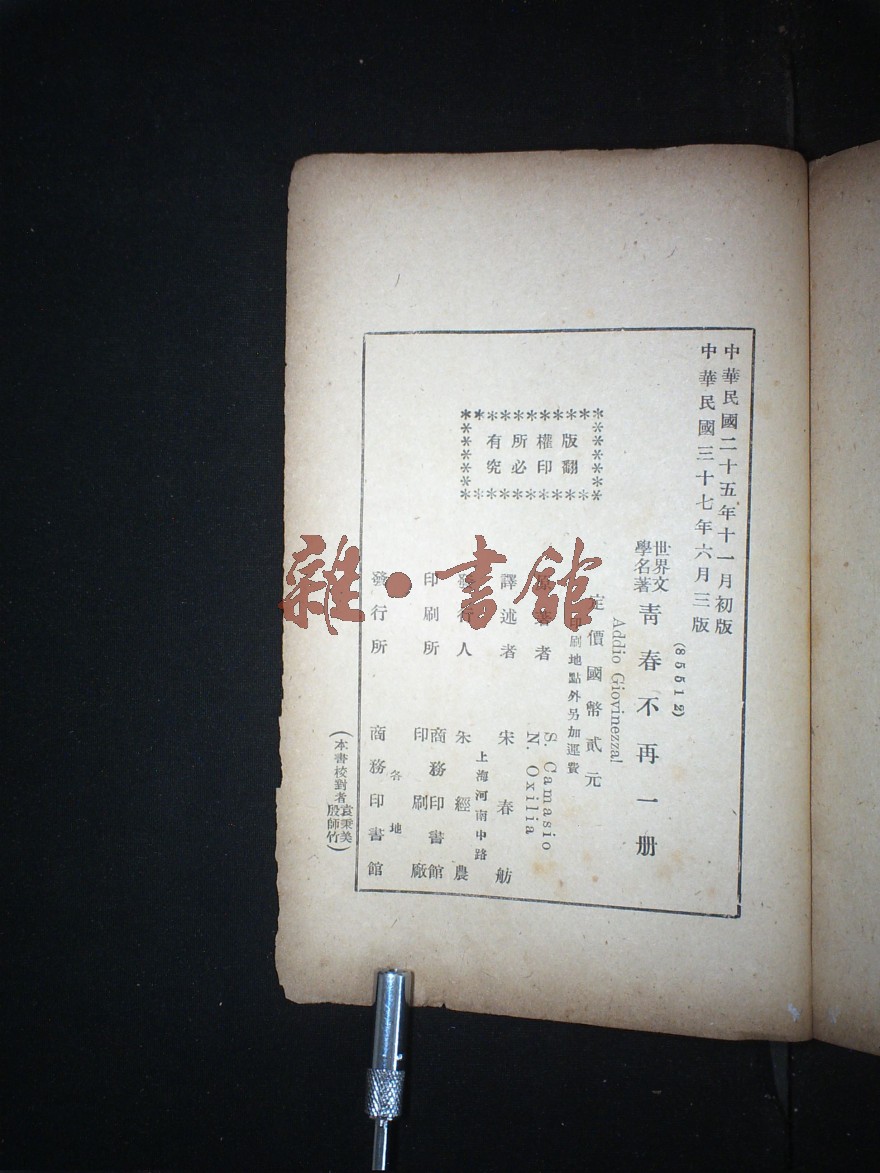 中華民國二十五年十一月初版
中華民國三十七年六月三版
(85512)
世界文學名著
青春不再一册
Addio Giovinezza!
定價國幣貳元
印刷地點外另加運費
版權所有
翻印必究
原著者
S. Camasio
N. Oxilia
譯述者 宋春舫
發行人 朱經農
上海河南中路
印刷所 商務印書館印刷廠
各地
發行所 商務印書館
(本書校對者袁秉美殷師竹)
雜·書館